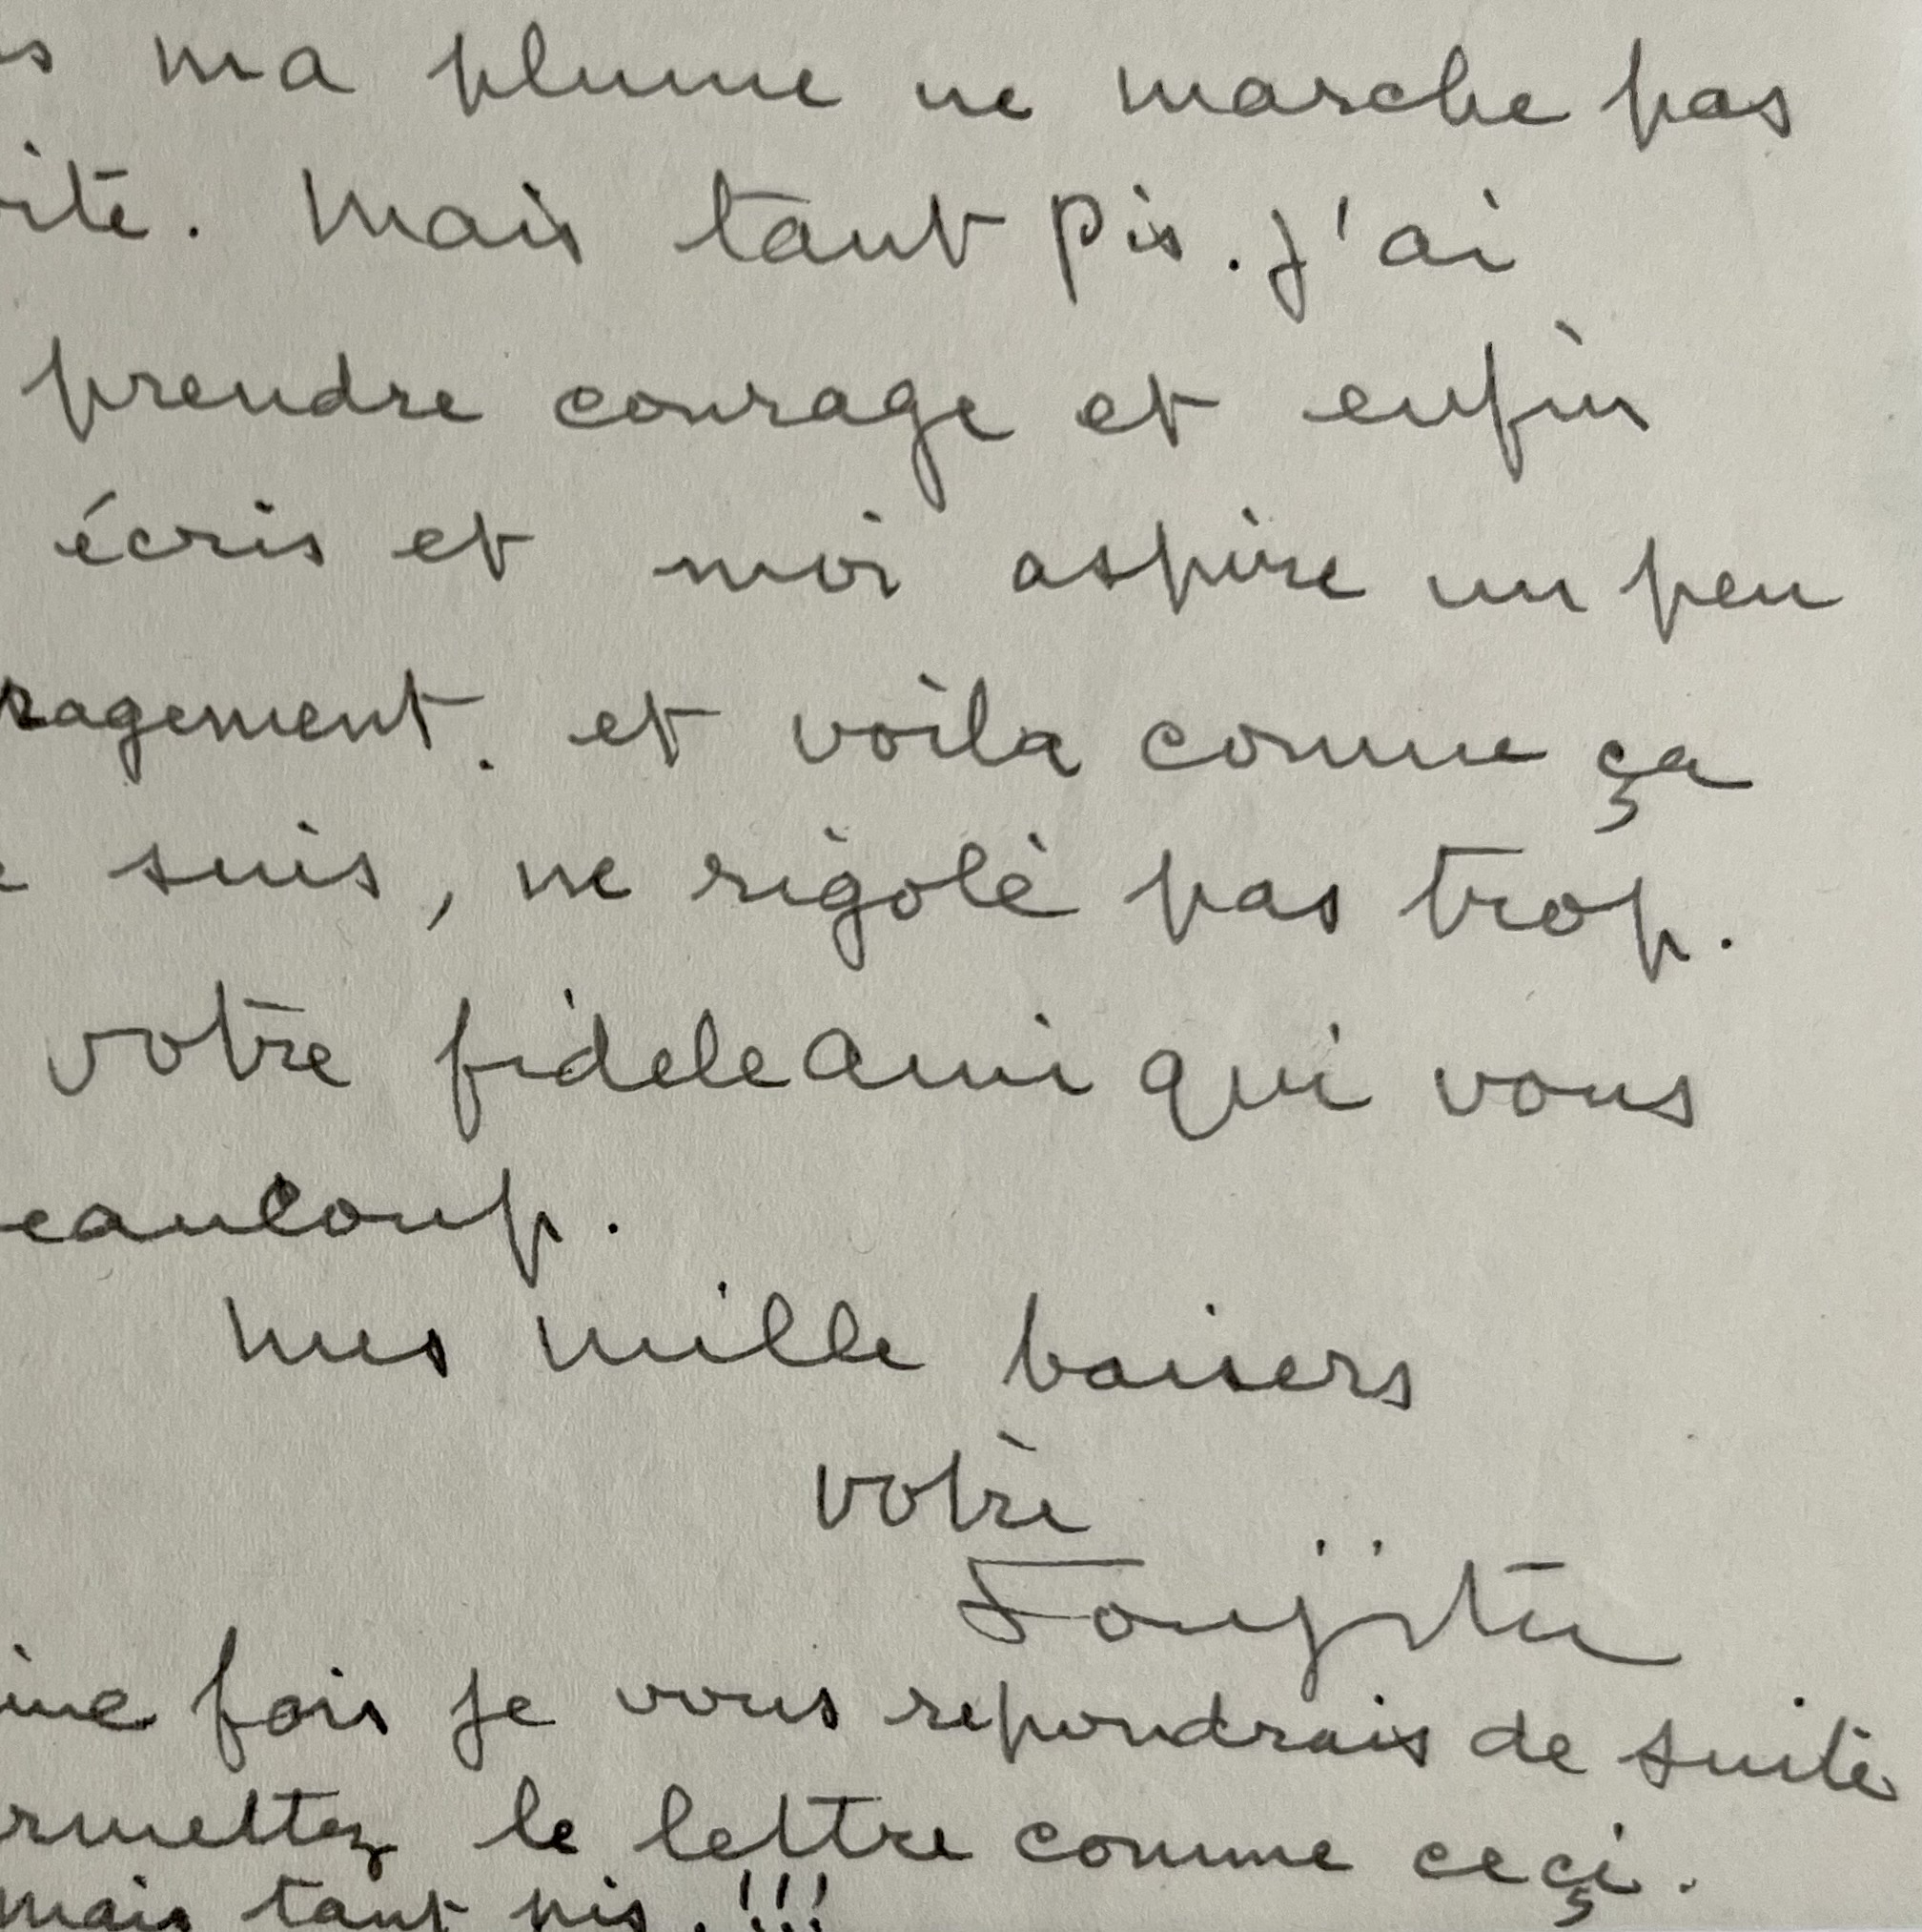 ma plume ne marche pas
ite. Mais tant Pis. j'ai
prendre courage et enfin
écris et moi aspire un peu
ragement. et voila comme ça
suis, ne rigolé pas trop.
votre fidele Ami qui vous
eaucoup.
mes mille baisers
votre
Foujita
ine fois je vous repondrais de suite
rmettez le lettre comme ceçi.
mais tant pis. !!!